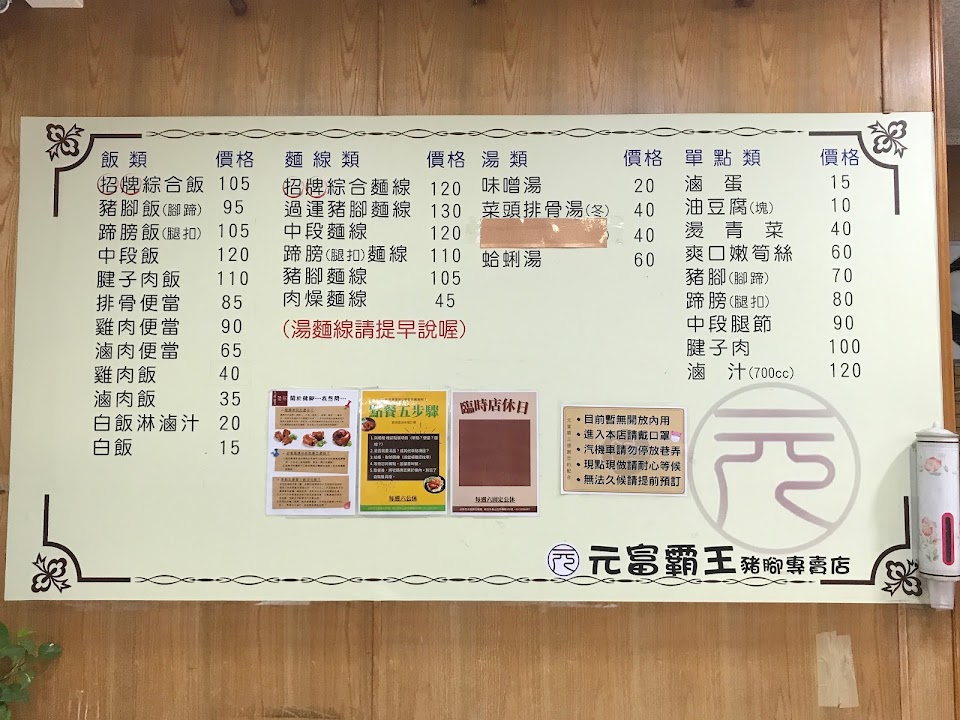 飯類 價格
招牌綜合飯 105
豬腳飯(腳蹄) 95
蹄膀飯(腿扣) 105
中段飯 120
腱子肉飯 110
排骨便當 85
雞肉便當 90
滷肉便當 65
雞肉飯 40
滷肉飯 35
白飯淋滷汁 20
白飯 15
麵線類 價格
招牌綜合麵線 120
過運豬腳麵線 130
中段麵線 120
蹄膀(腿扣)麵線 110
豬腳麵線 105
肉燥麵線 45
(湯麵線請提早說喔)
湯類 價格
味噌湯 20
菜頭排骨湯(冬) 40
40
蛤蜊湯 60
單點類 價格
滷蛋 15
油豆腐(塊) 10
燙青菜 40
爽口嫩筍絲 60
豬腳(腳蹄) 70
蹄膀(腿扣) 80
中段腿節 90
腱子肉 100
滷汁(700cc) 120
點餐五步驟
每週六公休
臨時店休日
每週六固定公休
•目前暫無開放內用
•進入本店請戴口罩
•汽機車請勿停放巷弄
•現點現做請耐心等候
•無法久候請提前預訂
元富霸王豬腳專賣店